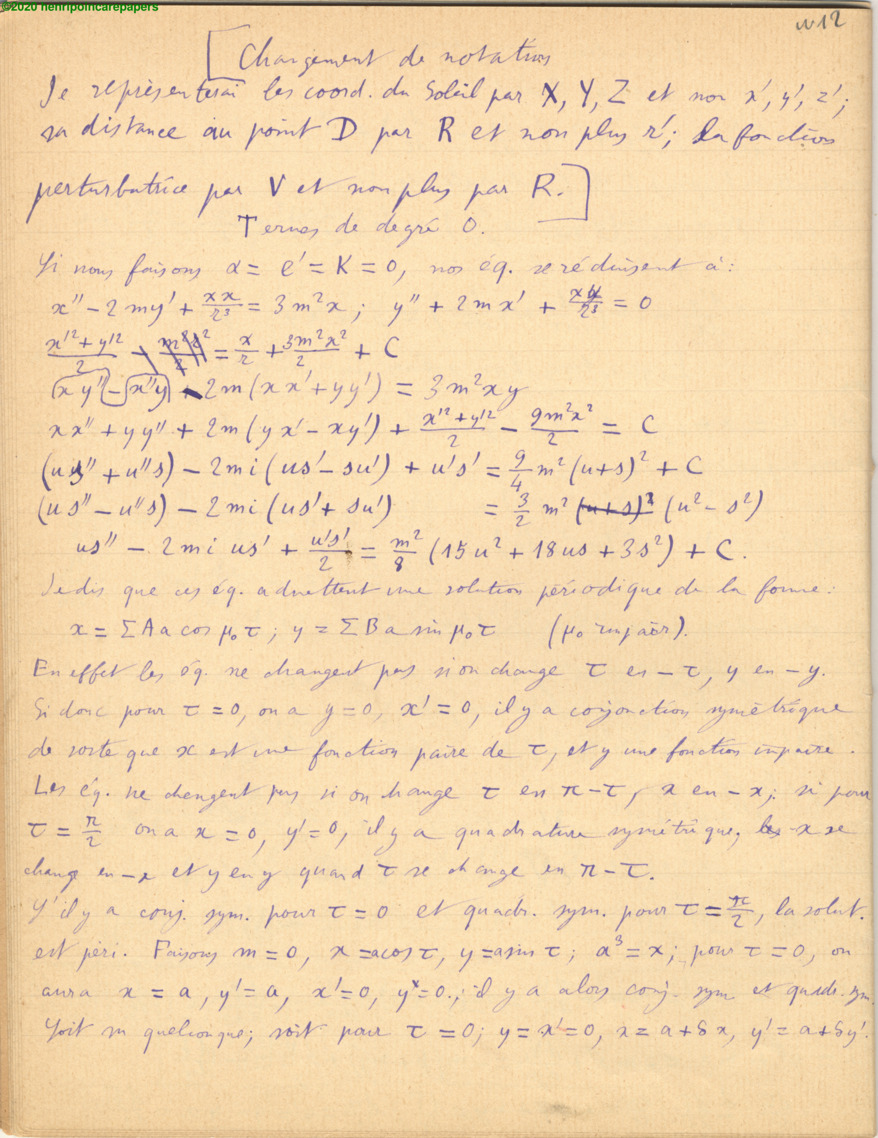 ©2020 henripoincarepapers
n12
[Changement de notations
Je représenterai les coord. du Soleil par X, Y, Z et non x', y', z';
sa distance au point D par R et non plus r'; la fonction
perturbatrice par V et non plus par R.]
Termes de degré 0.
Si nous faisons α = e' = K = 0, nos éq. se réduisent à :
x'' - 2my' + xx/r³ = 3m²x ; y'' + 2mx' + xy/r³ = 0
(x'² + y'²)/2 = x/r + 3m²x²/2 + C
(xy'' - x''y) + 2m(xx' + yy') = 3m²xy
xx'' + yy'' + 2m(yx' - xy') + (x'² + y'²)/2 - 9m²x²/2 = C
(us'' + u''s) - 2mi(us' - su') + u's' = 9/4 m²(u+s)² + C
(us'' - u''s) - 2mi(us' + su') = 3/2 m² (u² - s²)
us'' - 2mi us' + u's'/2 = m²/8 (15u² + 18us + 3s²) + C.
Je dis que ces éq. admettent une solution périodique de la forme :
x = ΣAa cos μ₀τ ; y = ΣBa sin μ₀τ (μ₀ impair).
En effet les éq. ne changent pas si on change τ en -τ, y en -y.
Si donc pour τ = 0, on a y = 0, x' = 0, il y a conjonction symétrique
de sorte que x est une fonction paire de τ, et y une fonction impaire.
Les éq. ne changent pas si on change τ en π-τ, x en -x ; si pour
τ = π/2 on a x = 0, y' = 0, il y a quadrature symétrique, x se
change en -x et y en y quand τ se change en π-τ.
S'il y a conj. sym. pour τ = 0 et quadr. sym. pour τ = π/2, la solut.
est péri. Faisons m = 0, x = a cos τ, y = a sin τ ; a³ = x ; pour τ = 0, on
aura x = a, y' = a, x' = 0, y = 0 ; il y a alors conj. sym et quadr. sym.
Soit m quelconque ; soit pour τ = 0 ; y = x' = 0, x = a + δx, y' = a + δy'.